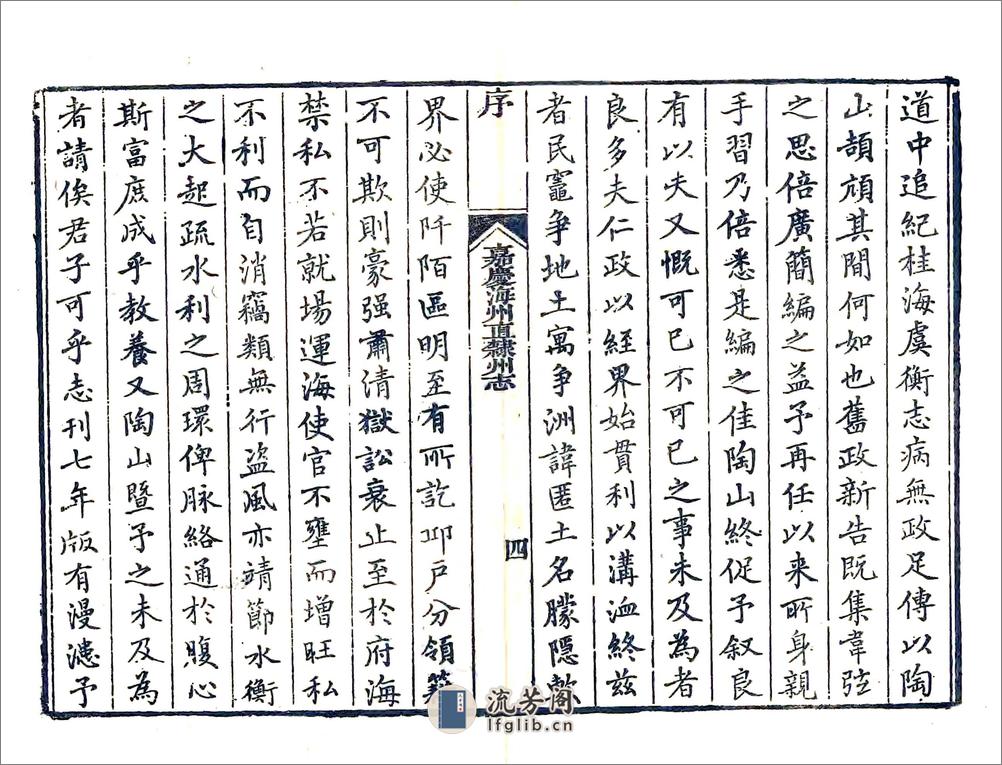 道中追紀桂海虞衡志病無政足傳以陶
山頡頏其間何如也舊政新告既集韋弦
之思倍廣簡編之益予再任以來所身親
手習乃倍悉是編之佳陶山終促予叙良
有以夫又慨可已不可已之事未及為者
良多夫仁政以經界始貫利以溝洫終茲
者民竈爭地土寓爭洲諱匿土名朦隱欺
序
嘉慶海州直隸州志
四
界必使阡陌區明至有所訖卭戶分領
不可欺則豪强肅清獄訟衰止至於府海
禁私不若就場運海使官不壅而增旺私
不利而自消竊類無行盜風亦靖節水衡
之大起疏水利之周環俾脉絡通於腹心
斯富庶成乎教養又陶山暨予之未及為
者請俟君子可乎志刊七年版有漫漶予
流芳阁
lfglib.cn